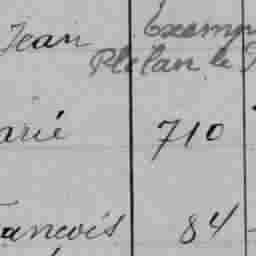 Jean Exemp
Plelan le
arié 710
ançois 84